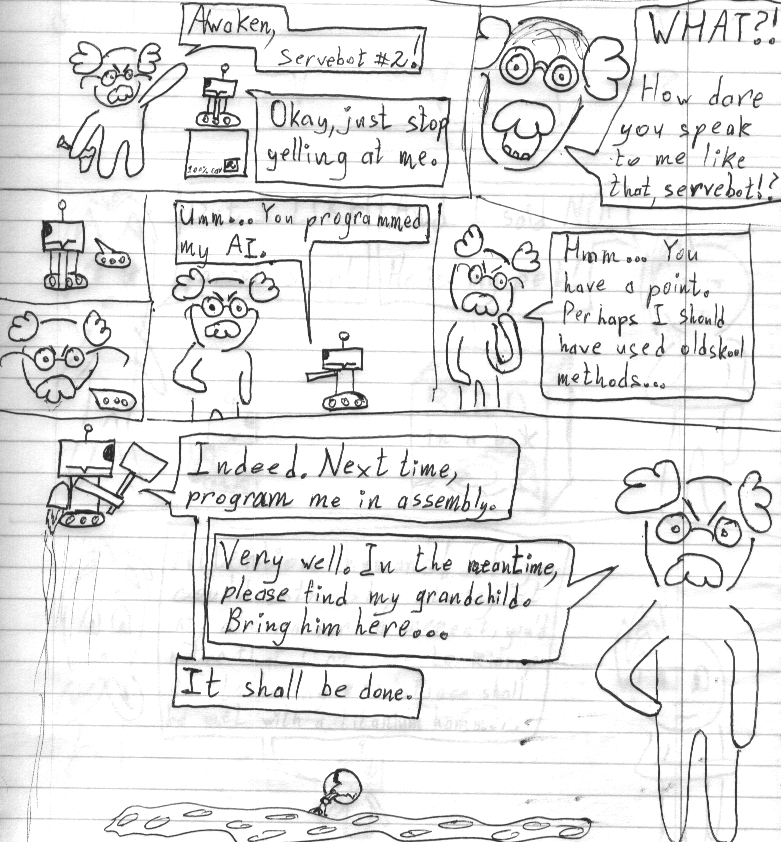 Awaken,
Servebot #2!
Okay, just stop
yelling at me.
WHAT?!
How dare
you speak
to me like
that, servebot!?
Umm... You programmed
my AI.
Hmm... You
have a point.
Perhaps I should
have used oldskool
methods...
Indeed. Next time,
program me in assembly.
Very well. In the meantime,
please find my grandchild.
Bring him here...
It shall be done.